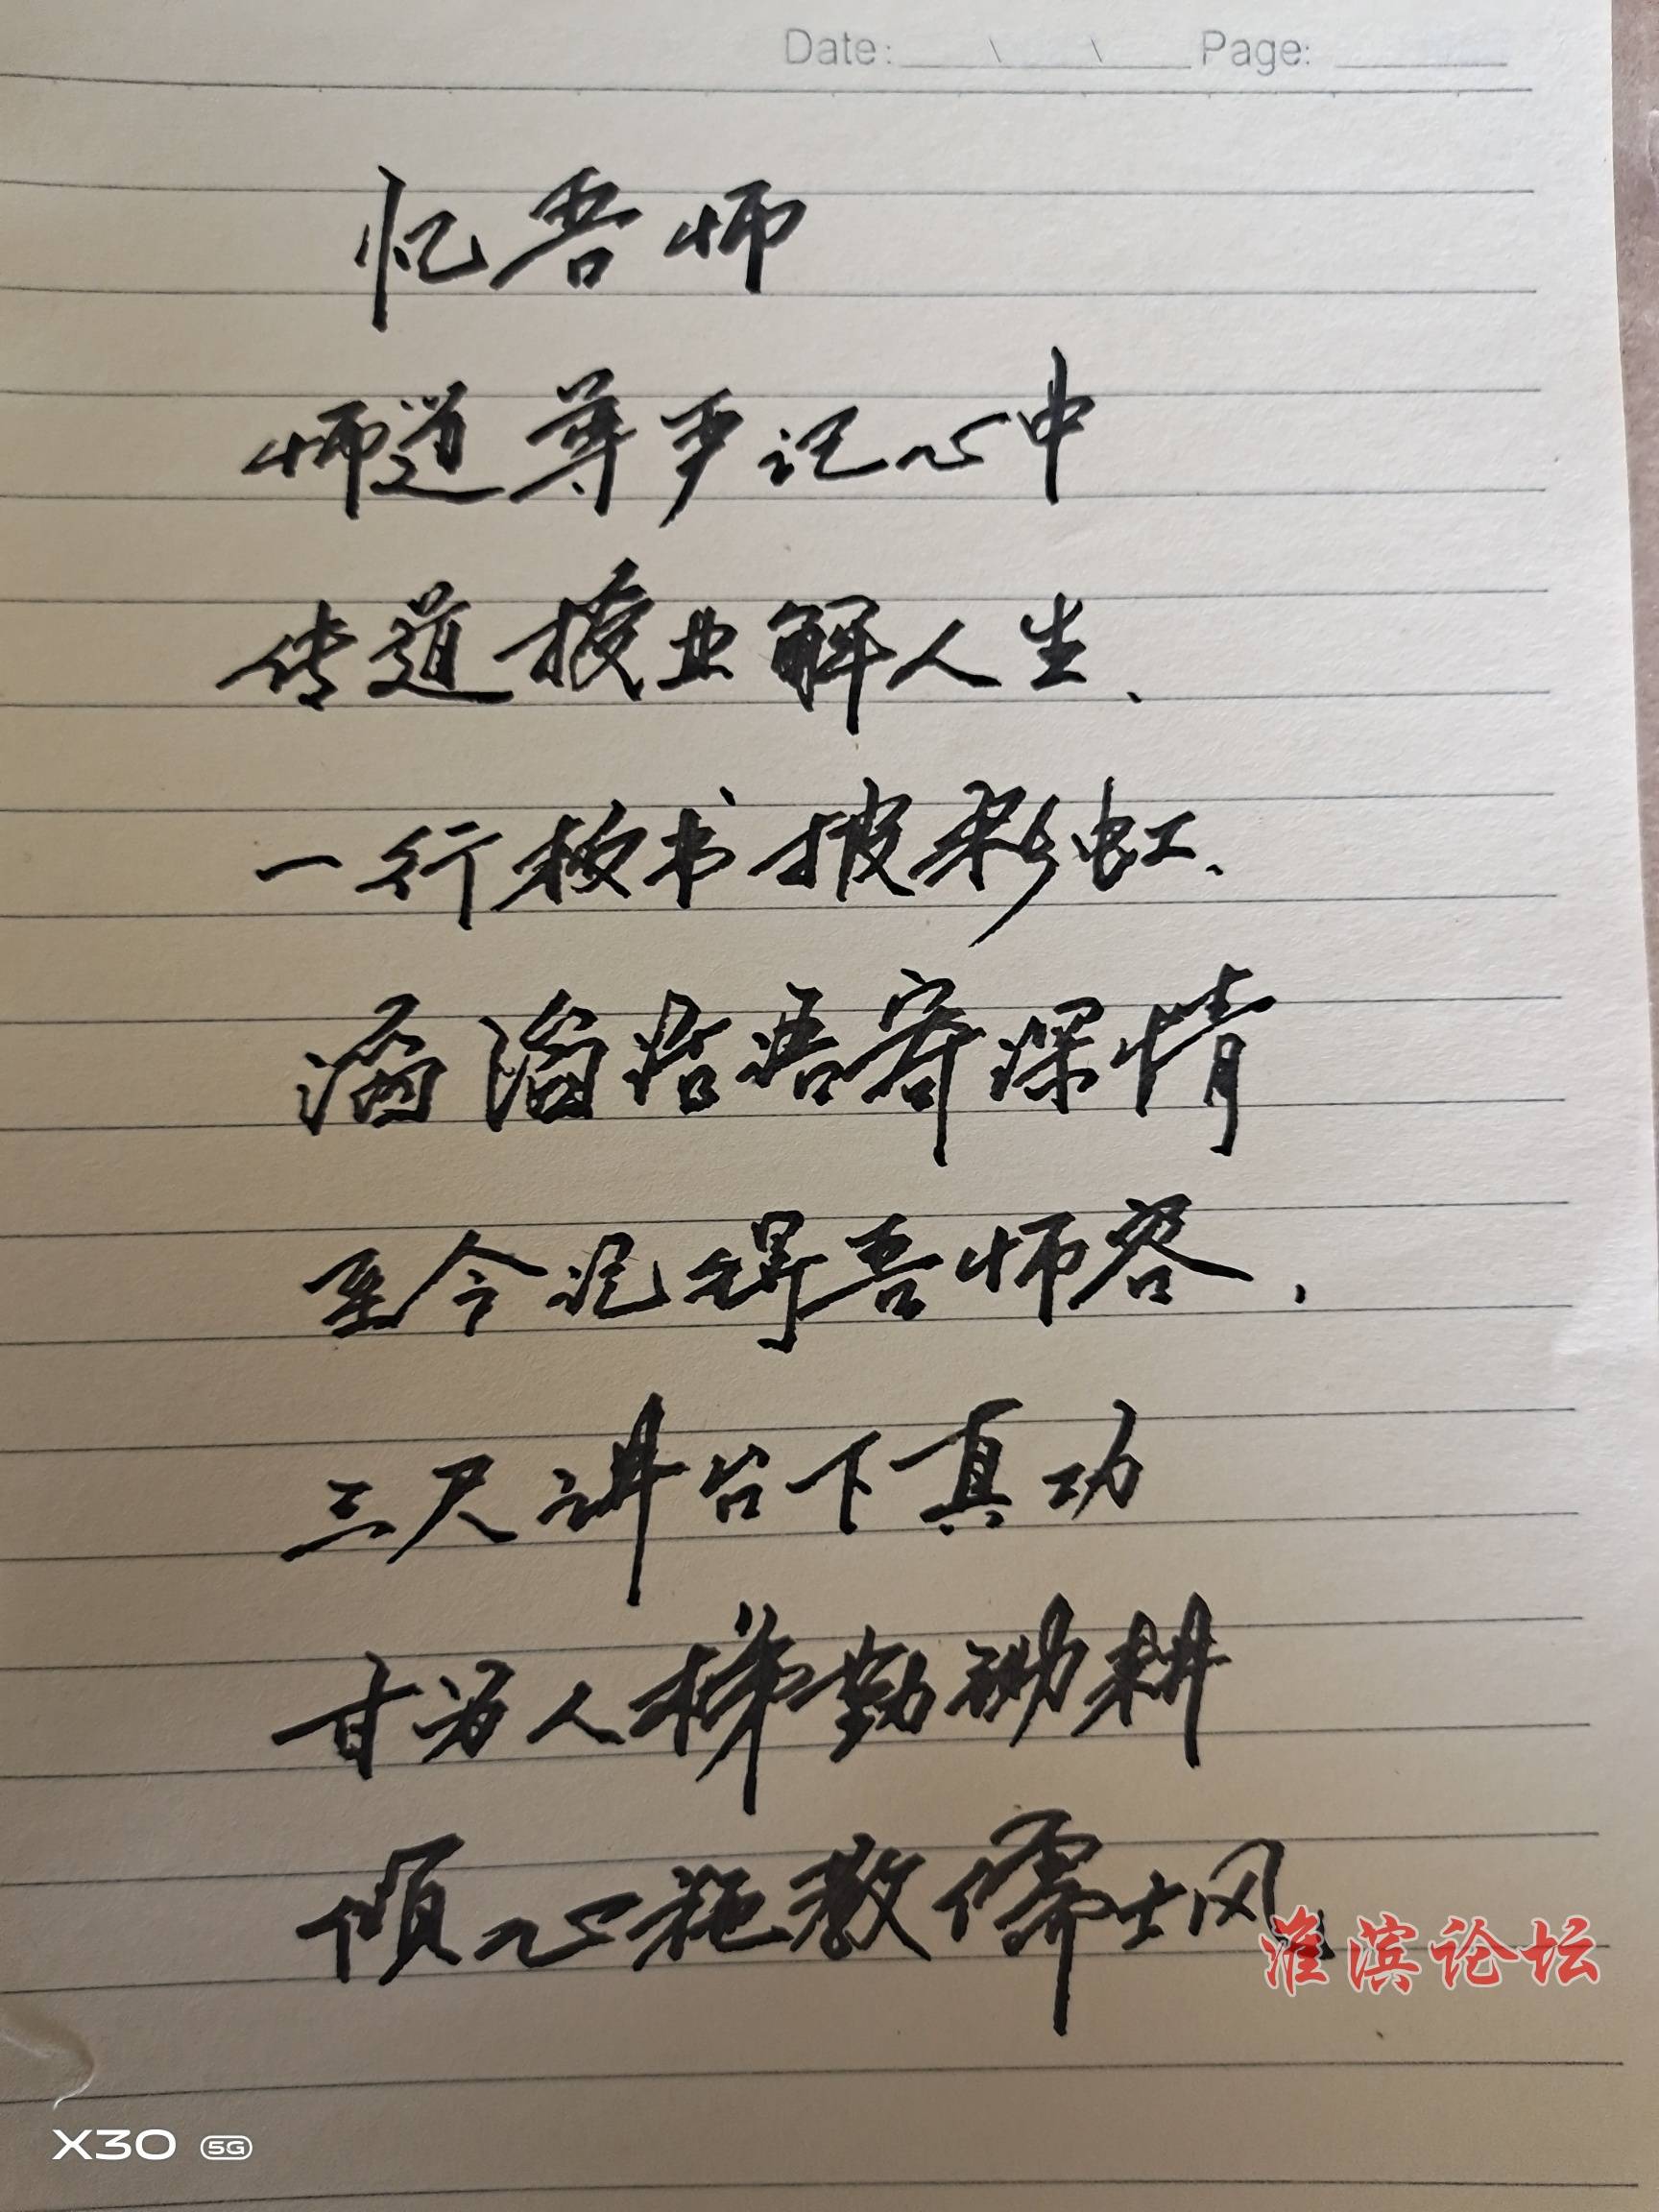 Date: \ \ Page:
忆吾师
师道尊严记心中
传道授业解人生、
一行板书披彩虹、
滔滔话语寄深情
至今记得吾师容,
三尺讲台下真功
甘为人梯勤耕
倾心施教儒士风
淮滨论坛
X30 5G